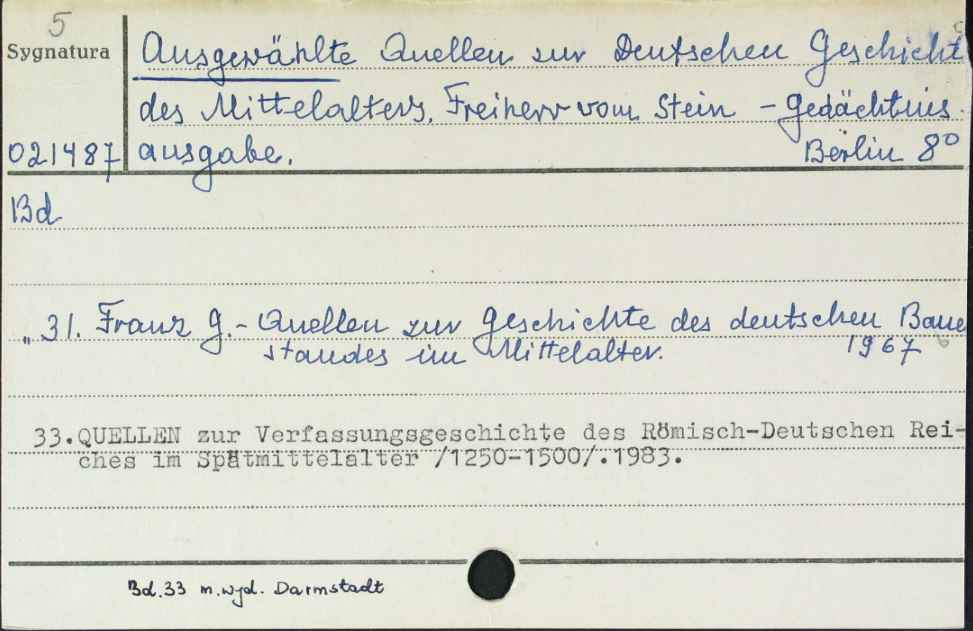 5
Sygnatura
Ausgewählte Quellen zur Deutschen Geschicht
des Mittelalters. Freiherr vom Stein - Gedächtnis
021487 ausgabe. Berlin 8°
Bd
„ 31. Franz G.- Quellen zur Geschichte des deutschen Baue
standes im Mittelalter. 1967
33. QUELLEN zur Verfassungsgeschichte des Römisch-Deutschen Rei-
ches im Spätmittelalter /1250-1500/.1983.
Bd. 33 m.wyd. Darmstadt